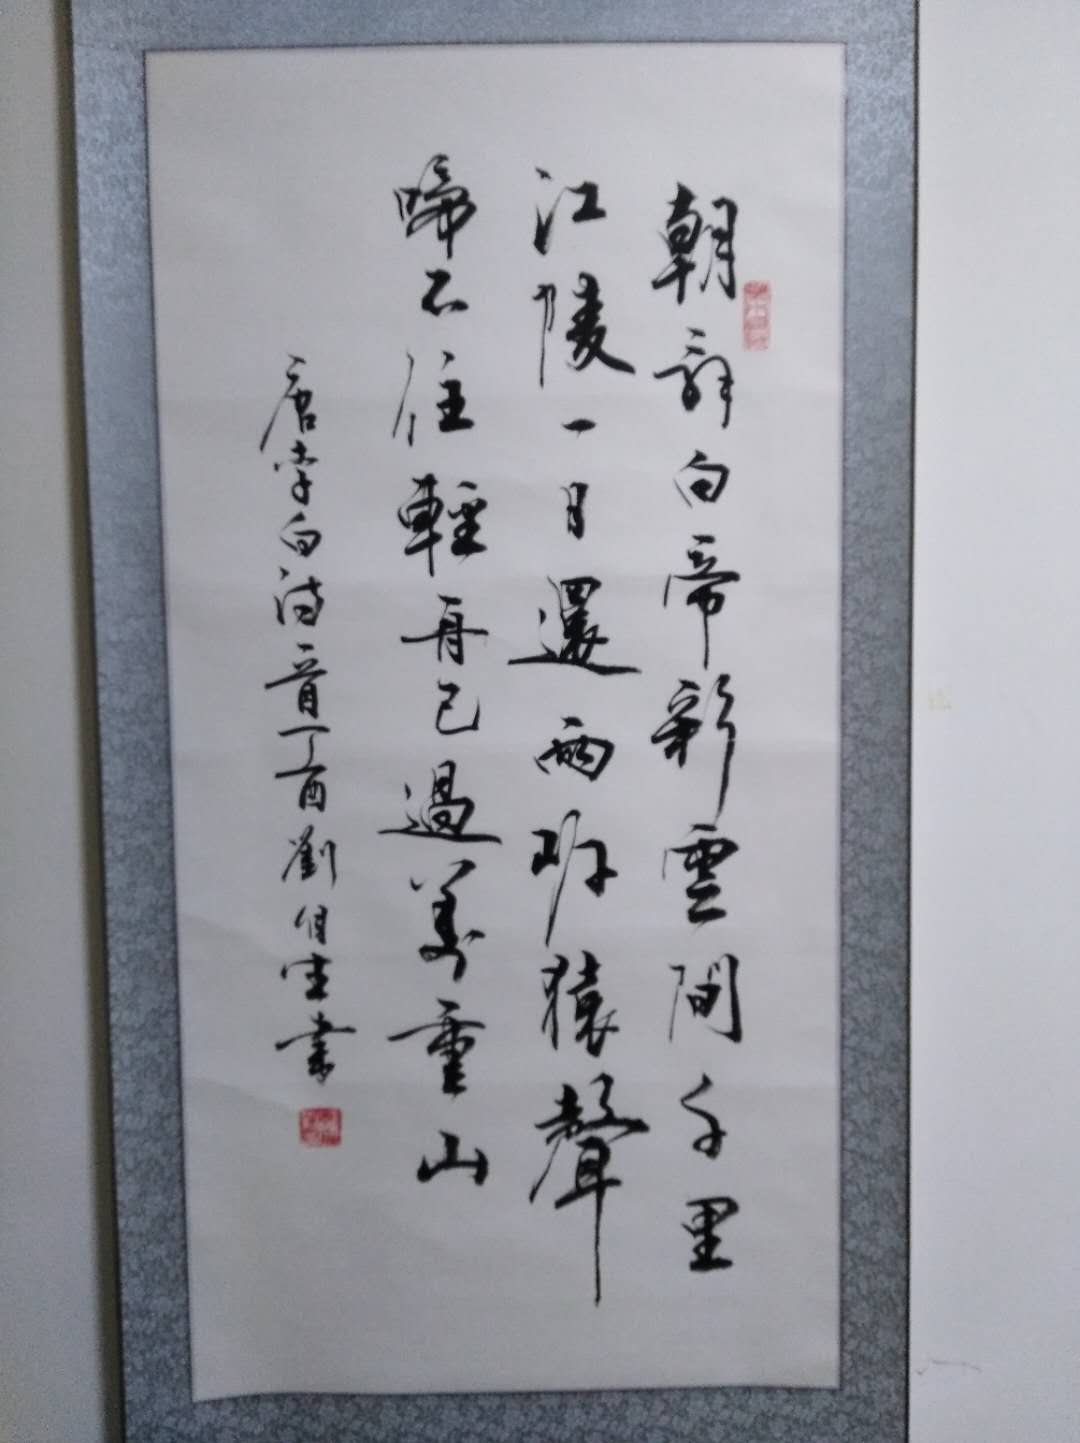 朝辞白帝彩雲間千里
江陵一日還兩岸猿聲
啼不住輕舟已過萬重山
唐李白詩一首丁酉劉自生書